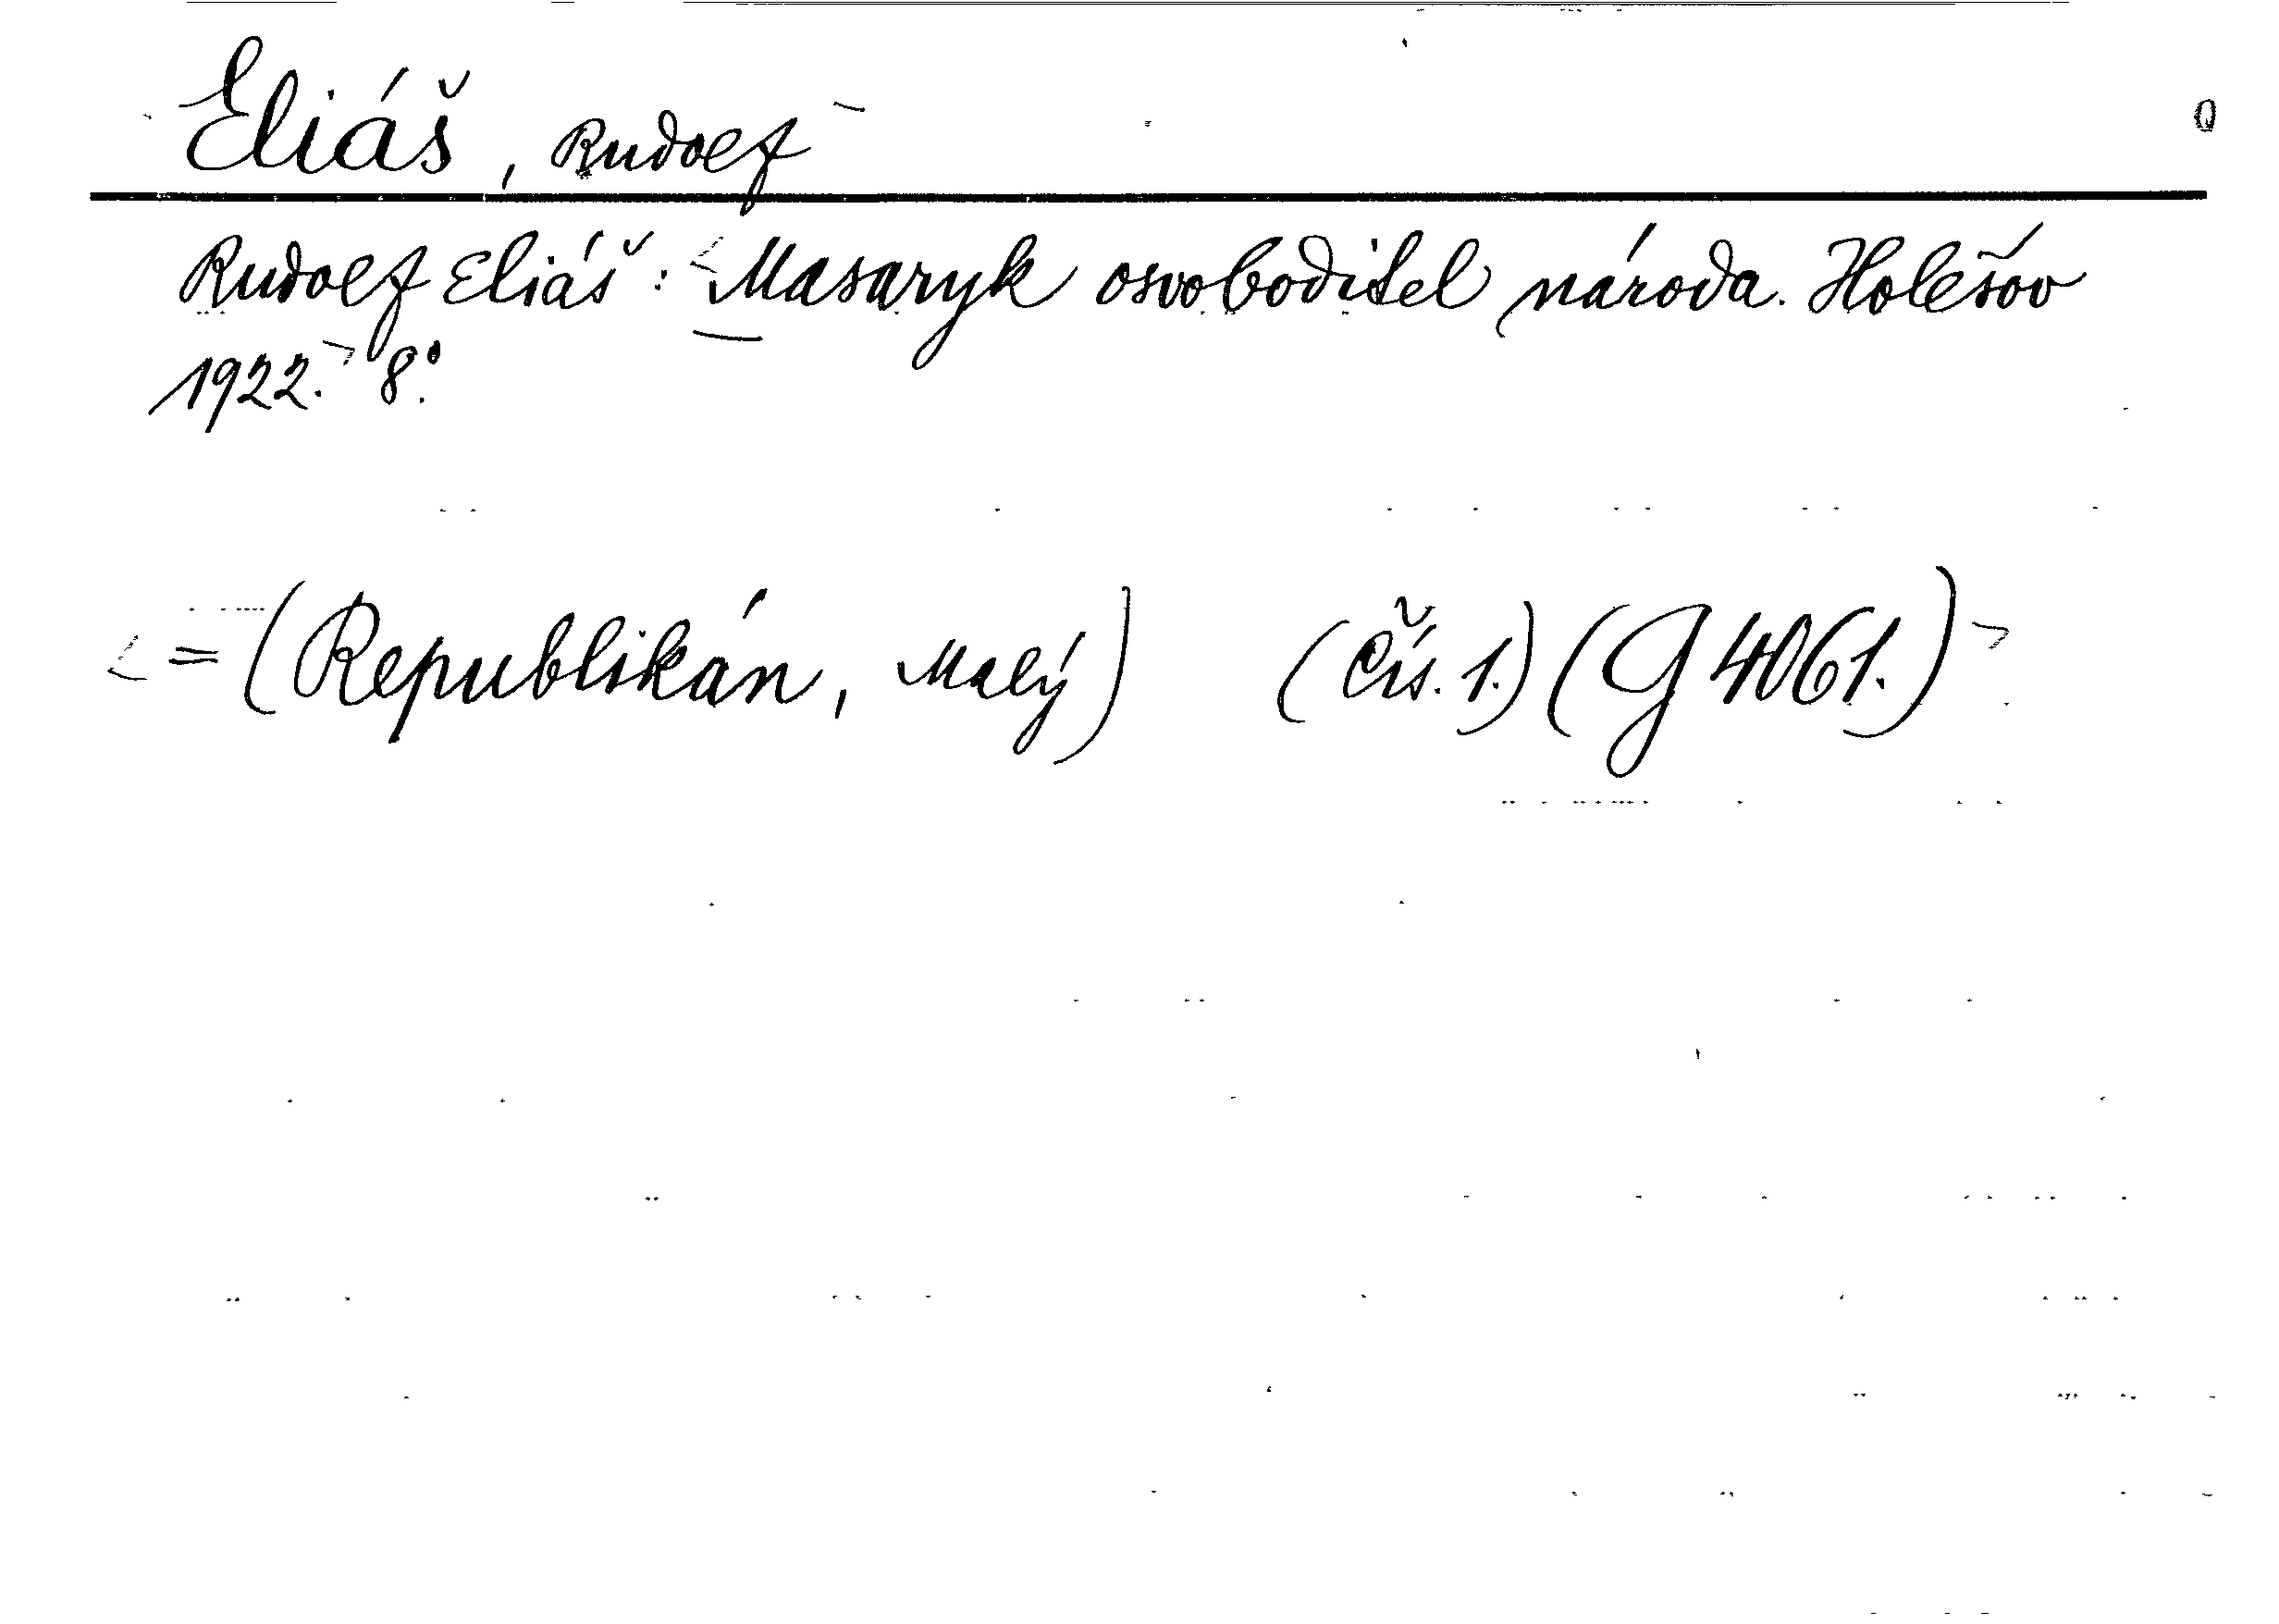 Eliáš, Rudolf
Rudolf Eliáš: Masaryk osvoboditel národa. Holešov
1922. 8°.
= (Republikán, Malý) (Čís. 1.) (G 4061.)